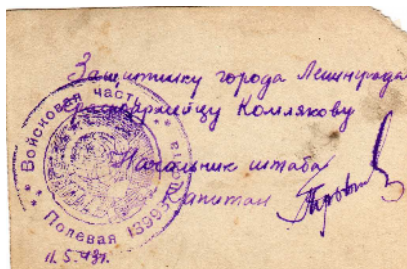 Защитнику города Ленинграда
красноармейцу Комлякову
Начальник штаба
Капитан
Войсковая часть
Полевая 13995
11.5.43г.